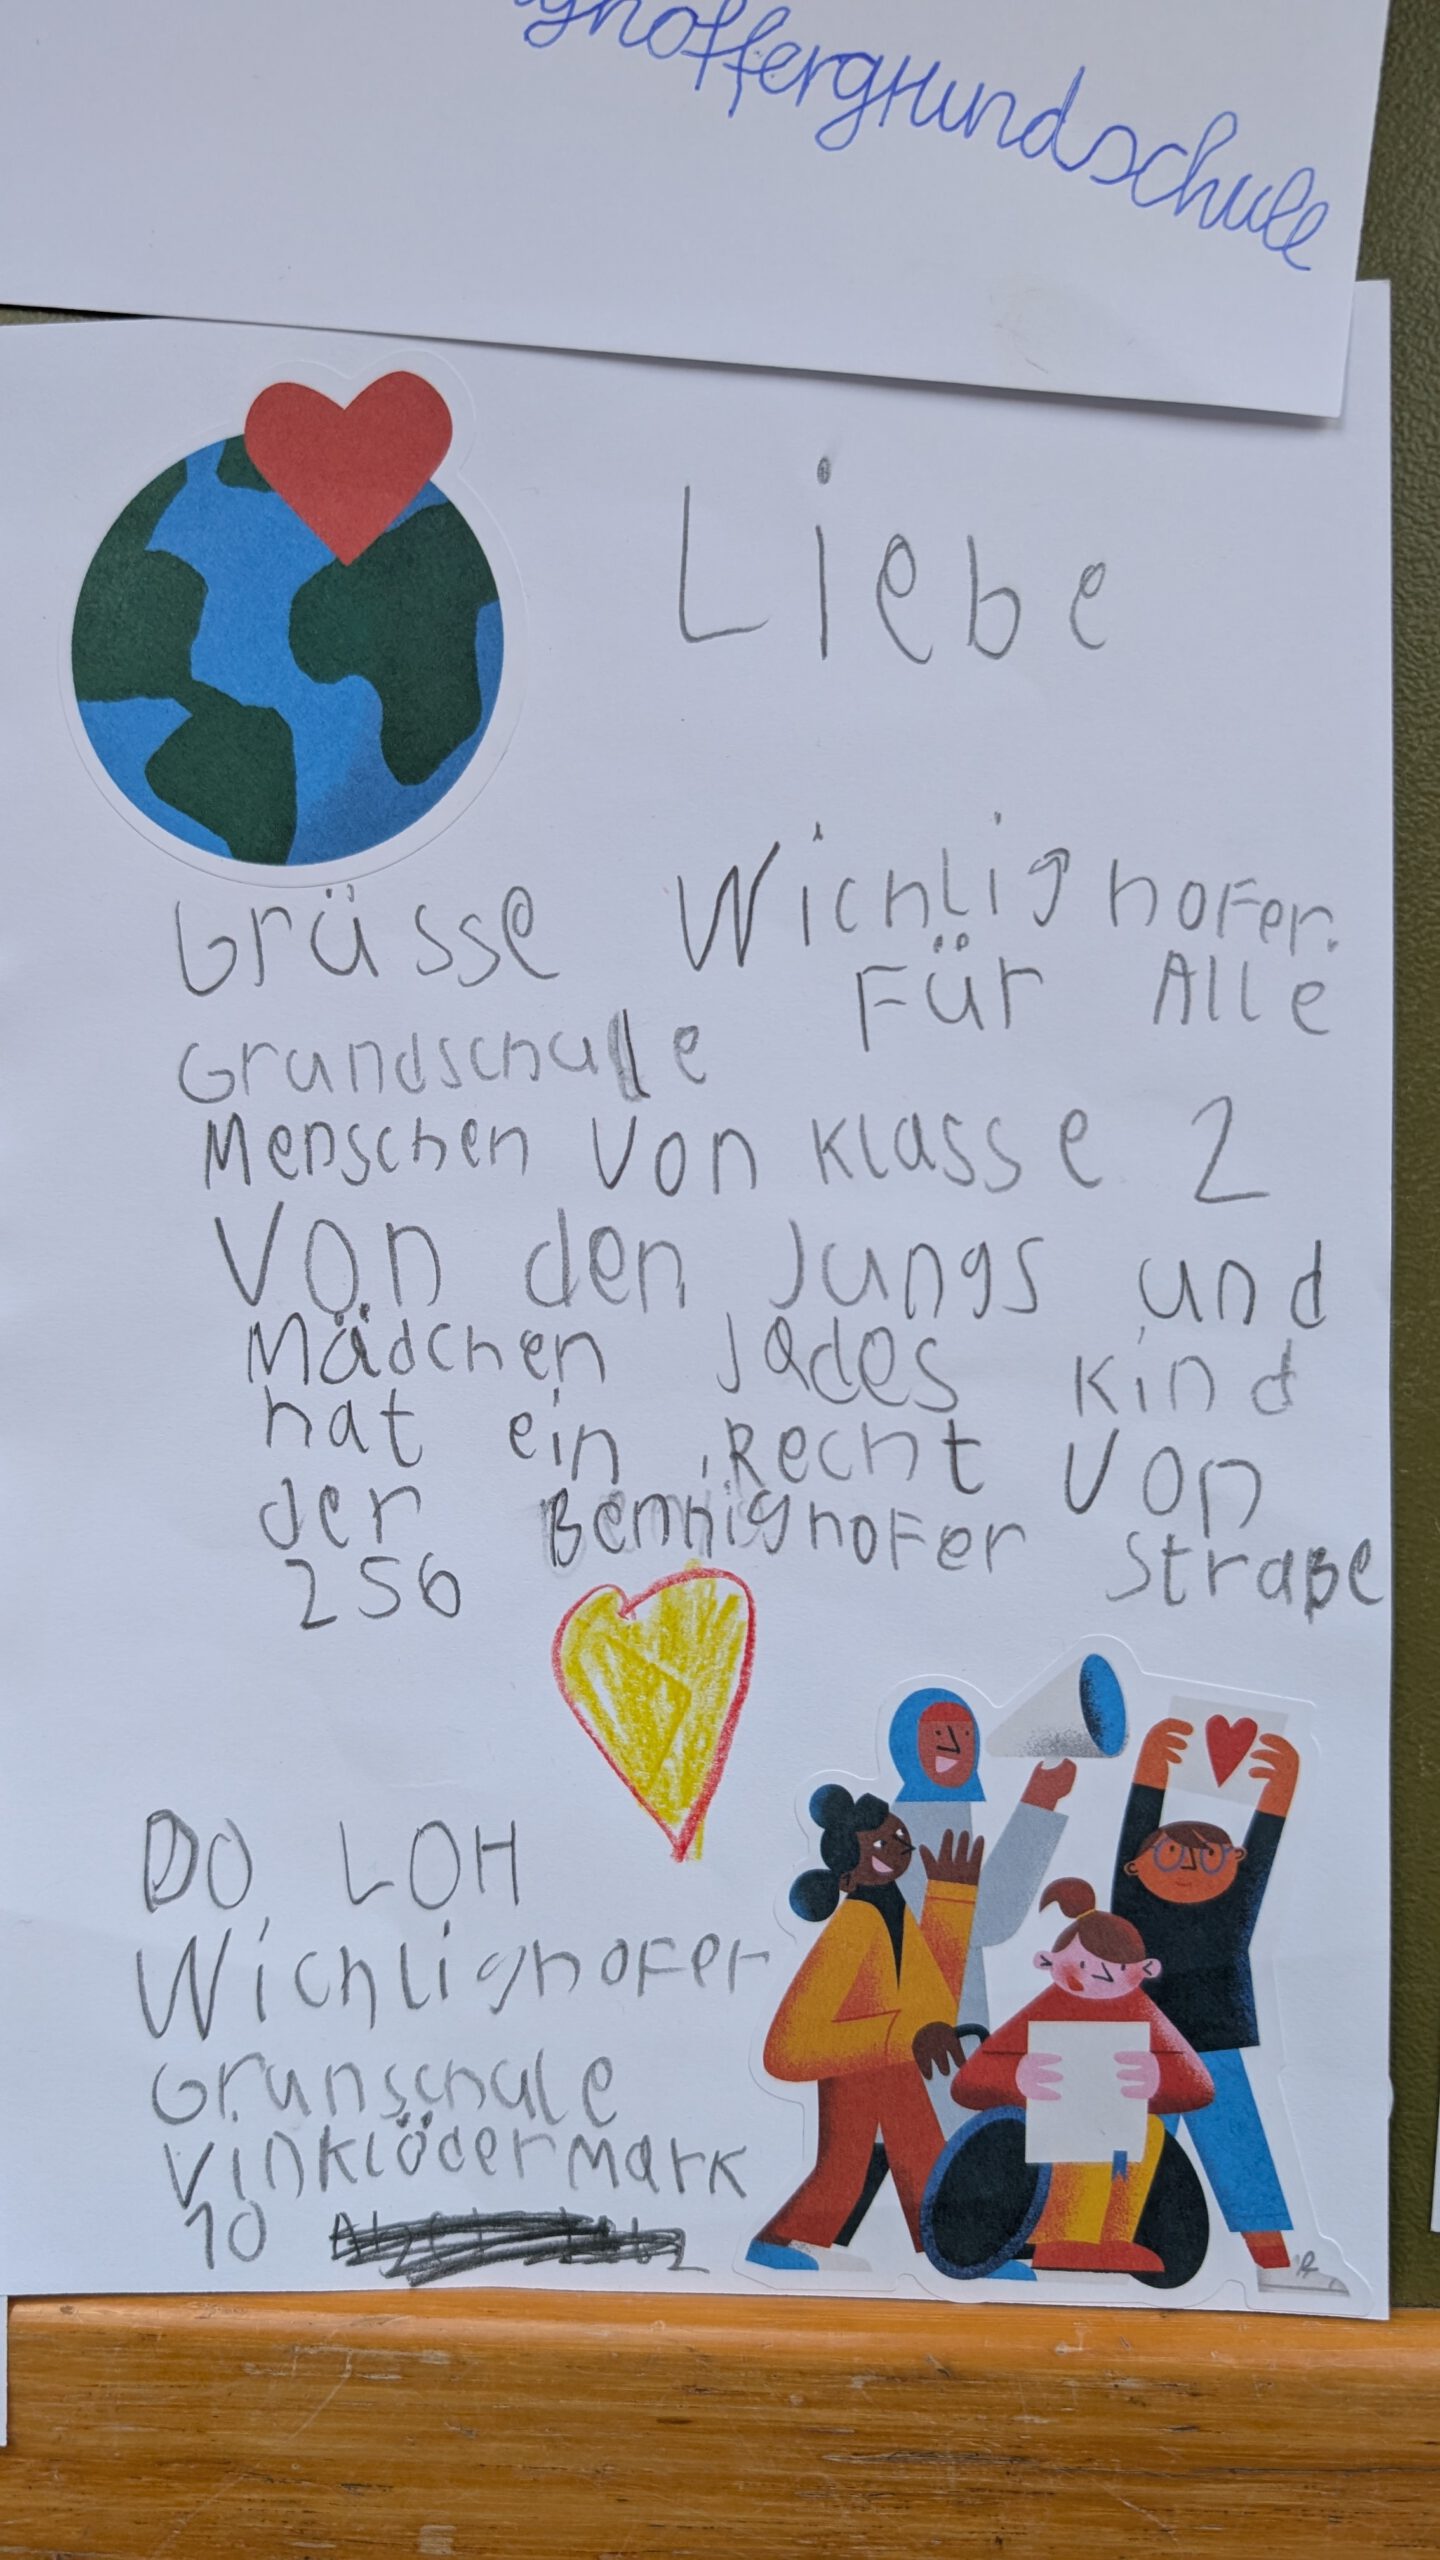 ghoffergrundschule
Liebe
Grüsse Wichlighofer.
Grundschule Für Alle
Menschen Von Klasse 2
Von den Jungs und
Mädchen Jedes Kind
hat ein Recht Von
der Bennighofer Straße
256
DO LOH
Wichlighofer
Grunschule
Vinklödermark
10